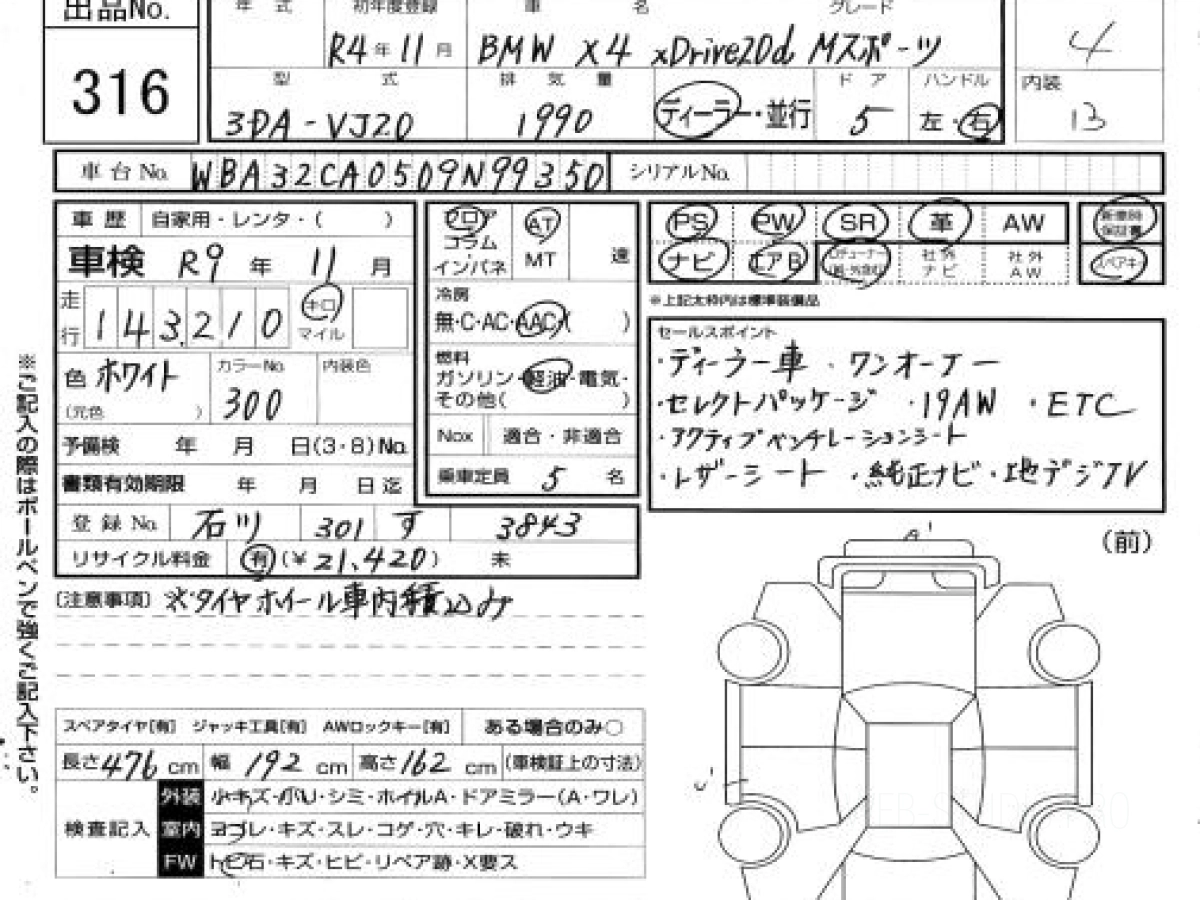 出品No.
316
年 式
初年度登録
R4年11月
車 名
グレード
BMW X4 xDrive20d Mスポーツ
4
型 式
3DA-VJ20
排気量
1990
ディーラー・並行
ドア
5
ハンドル
左・右
内装
13
車台No. WBA32CA0509N99350
シリアルNo.
車歴 自家用・レンタ・( )
車検 R9年11月
走行 143,210 キロ マイル
色 ホワイト
(元色 )
カラーNo.
300
内装色
予備検 年 月 日(3・8)No.
書類有効期限 年 月 日迄
登録No. 石川 301 す 3843
リサイクル料金 有(¥21,420) 未
フロア
コラム
インパネ
AT
MT
速
冷房
無・C・AC・AAC( )
燃料
ガソリン・軽油・電気・
その他( )
Nox 適合・非適合
乗車定員 5 名
PS PW SR 革 AW
新車時保証書
ナビ エアB
社外ナビ
社外AW
スペアキー
※上記太枠内は標準装備品
セールスポイント
・ディーラー車 ・ワンオーナー
・セレクトパッケージ ・19AW ・ETC
・アクティブベンチレーションシート
・レザーシート ・純正ナビ・地デジTV
※ご記入の際はボールペンで強くご記入下さい。
(注意事項) ※タイヤホイール車内積込み
(前)
A'
U'
スペアタイヤ[有] ジャッキ工具[有] AWロックキー[有] ある場合のみ○
長さ476cm 幅192cm 高さ162cm (車検証上の寸法)
検査記入
外装 小キズ・小U・シミ・ホイルA・ドアミラー(A・ワレ)
室内 ヨゴレ・キズ・スレ・コゲ・穴・キレ・破れ・ウキ
FW トビ石・キズ・ヒビ・リペア跡・X要ス